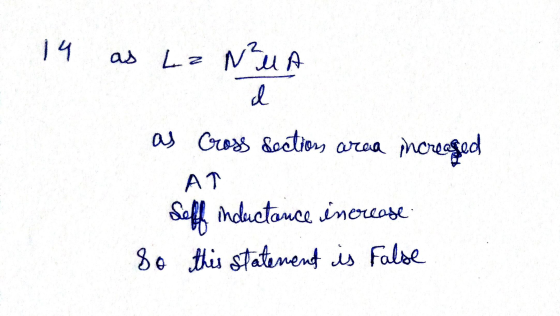 14 as L = N²μA
l
as Cross section area increased
A↑
Self inductance increase
So this statement is False